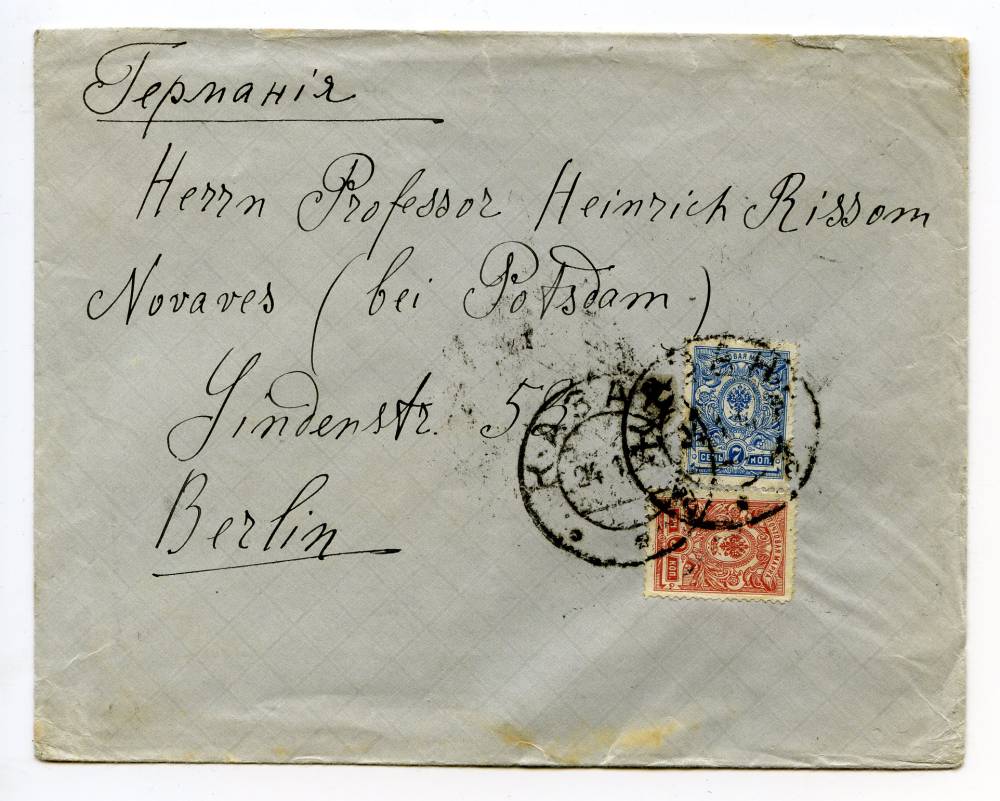 Германія
Herrn Professor Heinrich Rissom
Novaves (bei Potsdam)
Lindenstr. 53
Berlin
КАЗАНЬ
24
СЕМЬ 7 КОП.
КОП